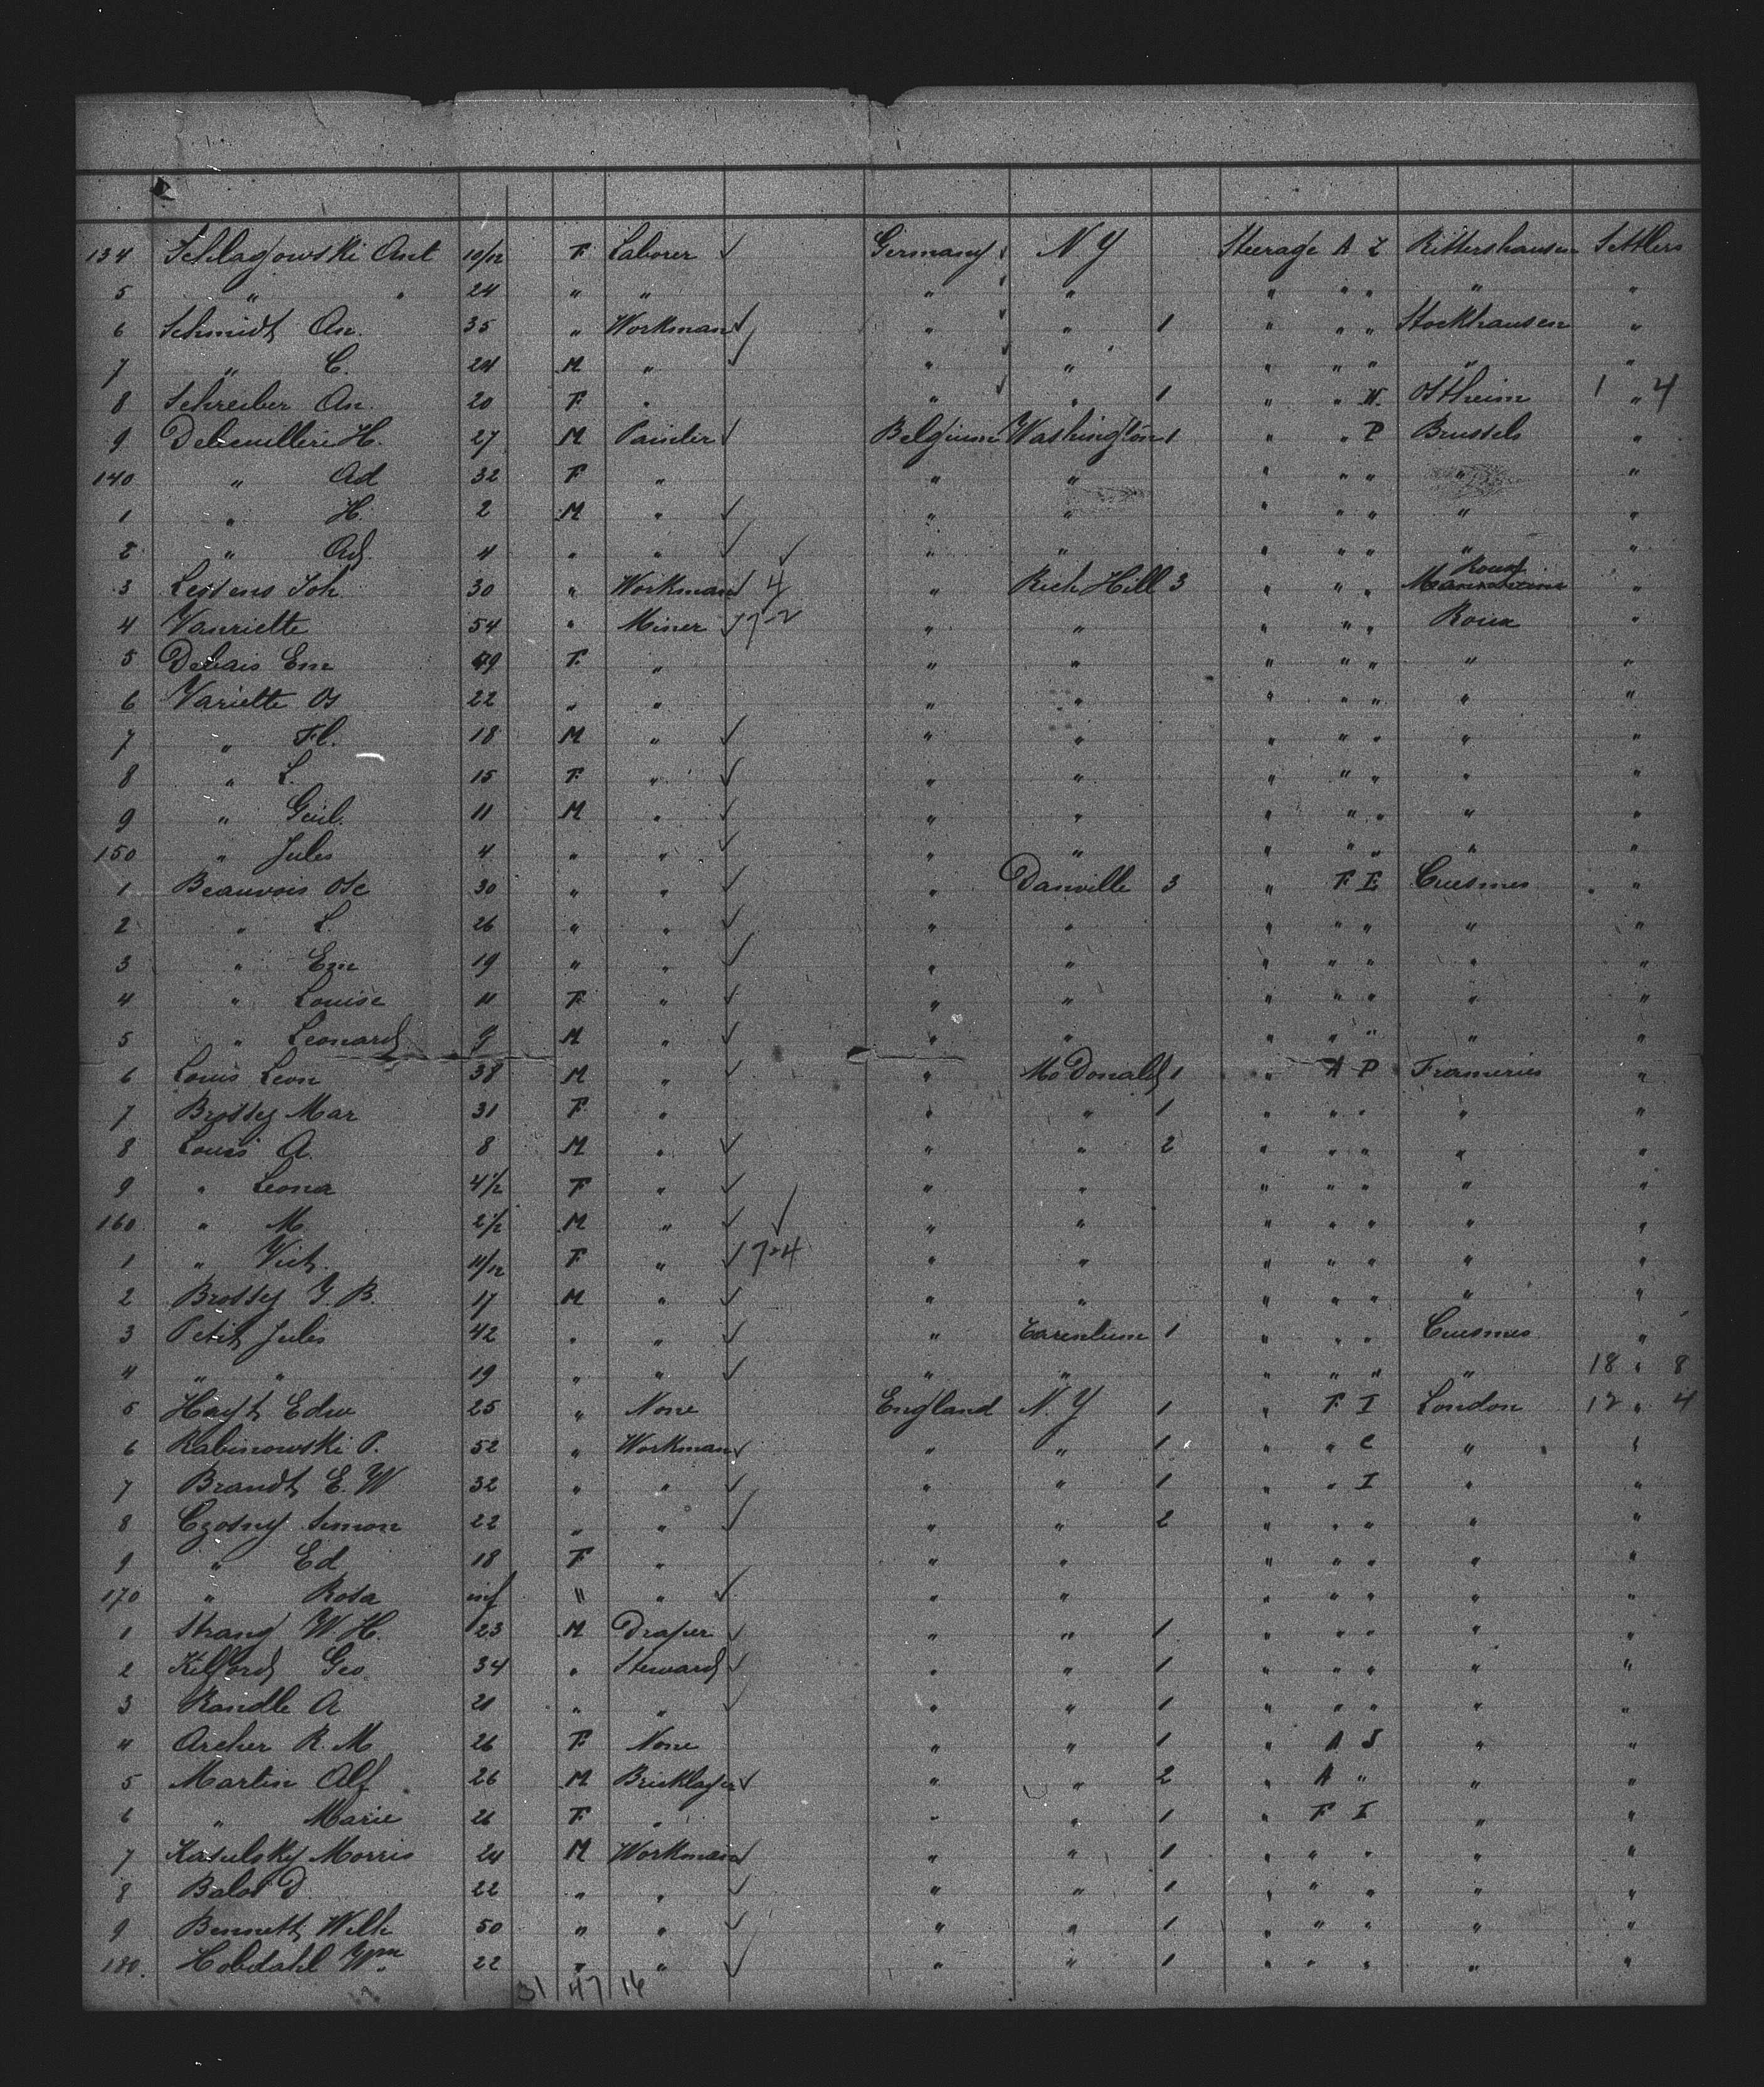 134 Schlagowski Ant 10/12 F Laborer ✓ Germany N Y Steerage A Z Rittershausen Settlers
5 " " 24 " " " " " " " " "
6 Schmidt An. 35 " Workman ✓ " " 1 " " " Stockhausen "
7 " C. 24 M " ✓ " " " " " " "
8 Schreiber An. 20 F " " " 1 " " W. Ostheim 1 " 4
9 H. 27 M Painter ✓ Belgium Washington 1 " " P Brussels "
140 " Ad 32 F " " " " " " " "
1 " H. 2 M " ✓ " " " " " " "
2 " Ad. 4 " " ✓ " " " " " " "
3 Joh 30 " Workman ✓ 4 " Rich Hill 3 " " " Roux "
4 Vanriette 54 " Miner ✓ 17-2 " " " " " Roux "
5 Debais Em 49 F " " " " " " " "
6 Variette Os 22 " " " " " " " " "
7 " Fl. 18 M " ✓ " " " " " " "
8 " L. 15 F " ✓ " " " " " " "
9 " Guil. 11 M " ✓ " " " " " " "
150 " Jules 4 " " ✓ " " " " " " "
1 Beauvois Osc 30 " " ✓ " Danville 3 " F E Cuesmes "
2 " L. 26 " " ✓ " " " " " " "
3 " Em 19 " " ✓ " " " " " " "
4 " Louise 11 F " ✓ " " " " " " "
5 " Leonard 9 M " ✓ " " " " " " "
6 Louis Leon 38 M " ✓ " McDonald 1 " A P Frameries "
7 Brossey Mar 31 F " " " 1 " " " " "
8 Louis A. 8 M " ✓ " " 2 " " " " "
9 " Leona 4 1/2 F " ✓ " " " " " " "
160 " M 2 1/2 M " ✓ " " " " " " "
1 " Vict. 11/12 F " ✓ 17-4 " " " " " " "
2 Brossey J. B. 17 M " ✓ " " " " " " "
3 Petit Jules 42 " " ✓ " Tarentum 1 " " " Cuesmes "
4 " " 19 " " ✓ " " " " " " 18 " 8
5 Hayt Edw 25 " None England N. Y 1 " F I London 12 " 4
6 Rabinowski P. 52 " Workman ✓ " " 1 " " C " "
7 Brandt E. W 32 " " ✓ " " 1 " " I " "
8 Czosny Simon 22 " " ✓ " " 2 " " " " "
9 " Ed 18 F " " " " " " " "
170 " Rosa inf " " ✓ " " " " " " "
1 Strang W H. 23 M Draper ✓ " " 1 " " " " "
2 Kilford Geo. 34 " Steward ✓ " " 1 " " " " "
3 Randle A 21 " " ✓ " " 1 " " " " "
4 Archer R. M 26 F None " " 1 " A S " "
5 Martin Alf 26 M Bricklayer ✓ " " 2 " A " " "
6 " Marie 26 F " " " 1 " F I " "
7 Kasulsky Morris 24 M Workman ✓ " " 1 " " " " "
8 D. 22 " " ✓ " " 1 " " " " "
9 Bennett Wilh 50 " " ✓ " " 1 " " " " "
180. Hobdahl Wm. 22 " " ✓ " " 1 " " " " "
31 47 16